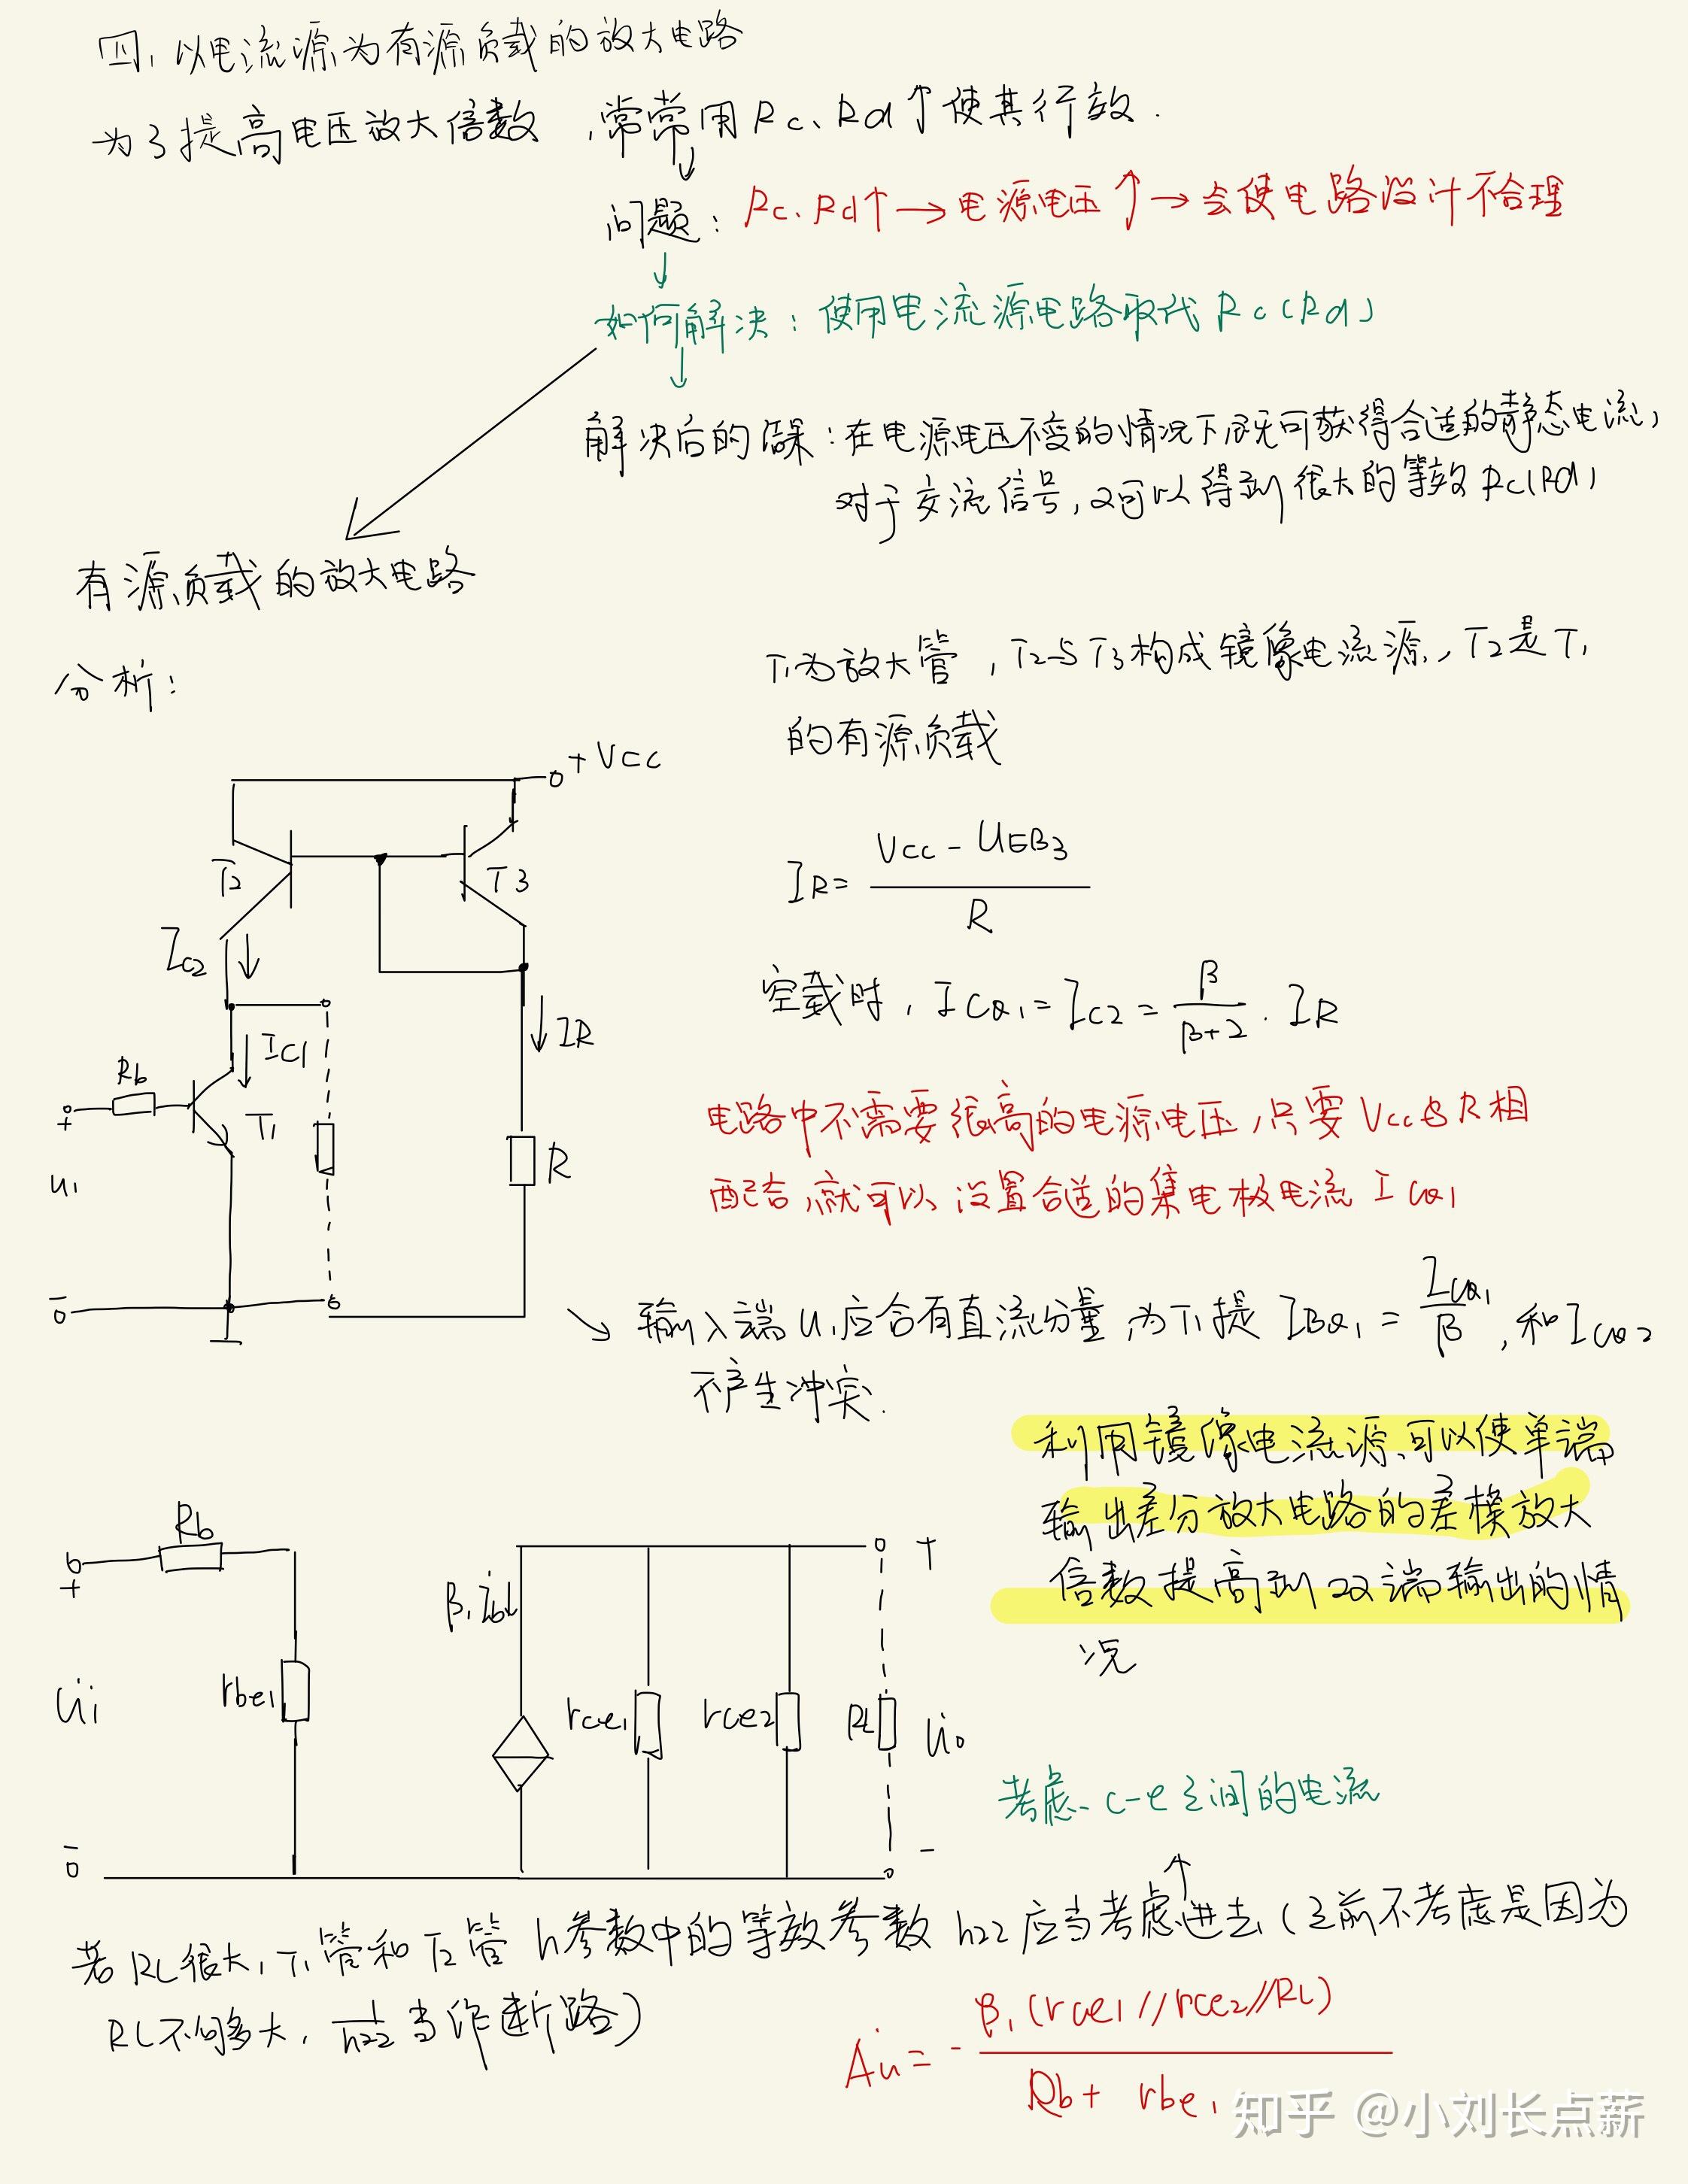 四、以电流源为有源负载的放大电路
为了提高电压放大倍数,常常用Rc、Rd↑使其行效.
问题:Rc、Rd↑→电源电压↑→会使电路设计不合理
如何解决:使用电流源电路取代Rc(Rd)
解决后的结果:在电源电压不变的情况下,既可获得合适的静态电流,
对于交流信号,又可以得到很大的等效Rc(Rd)
有源负载的放大电路
分析:
T1为放大管,T2与T3构成镜像电流源,T2是T1
的有源负载
+Vcc
T2
T3
IR = (Vcc - UEB3) / R
Ic2
空载时,ICQ1 = Ic2 = β/(β+2) · IR
IR
Ic1
Rb
+
T1
R
u1
-
电路中不需要很高的电源电压,只要Vcc与R相
配合,就可以设置合适的集电极电流ICQ1
输入端u1应含有直流分量,为T1提IBQ1 = ICQ1/β,和ICQ2
不产生冲突.
利用镜像电流源,可以使单端
输出差分放大电路的差模放大
倍数提高到双端输出的情
况
Rb
+
U̇i
-
rbe1
β1 i̇b↓
rce1
rce2
RL
+
U̇o
-
考虑c-e之间的电流
若RL很大,T1管和T2管h参数中的等效参数h22应当考虑进去(之前不考虑是因为
RL不够多大,1/h22当作断路)
Ȧu = - β1(rce1//rce2//RL) / (Rb + rbe1)
知乎 @小刘长点薪